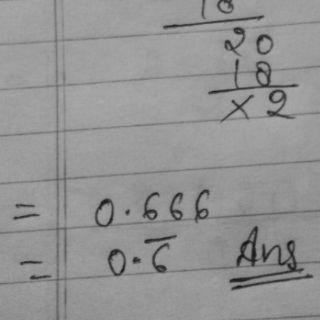 18
20
18
×2
= 0.666
= 0.6̅ Ans